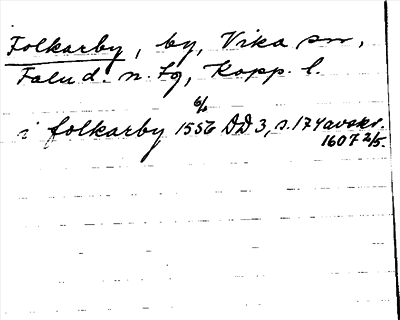 Folkarby, by, Vika sn,
Falu d. n. fg, Kopp. l.
i folkarby 1556 6/6 DD 3, s. 174 avskr.
1607 2/5.